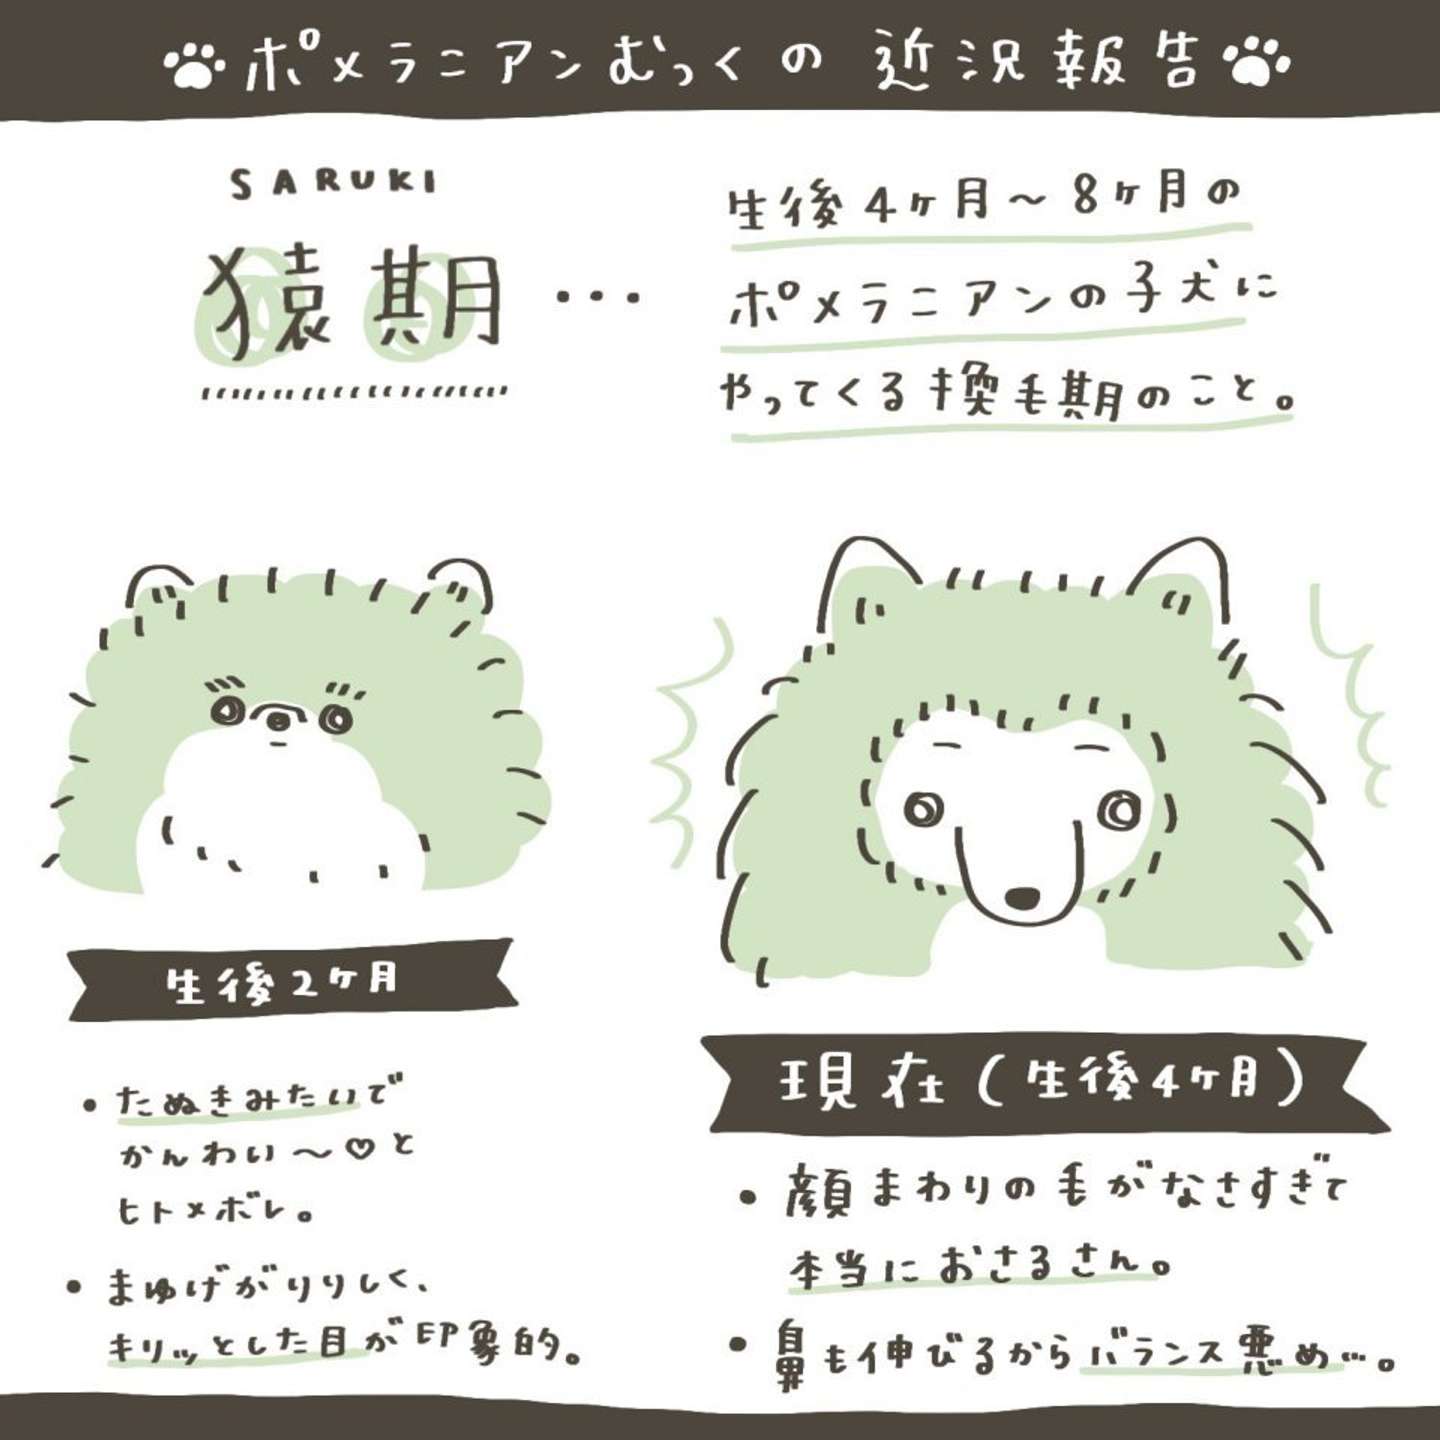 ポメラニアンむっくの近況報告
SARUKI
猿期…
生後4ヶ月〜8ヶ月の
ポメラニアンの子犬に
やってくる換毛期のこと。
生後2ヶ月
・たぬきみたいで
かんわい〜♡と
ヒトメボレ。
・まゆげがりりしく、
キリッとした目が印象的。
現在(生後4ヶ月)
・顔まわりの毛がなさすぎて
本当におさるさん。
・鼻も伸びるからバランス悪め…。